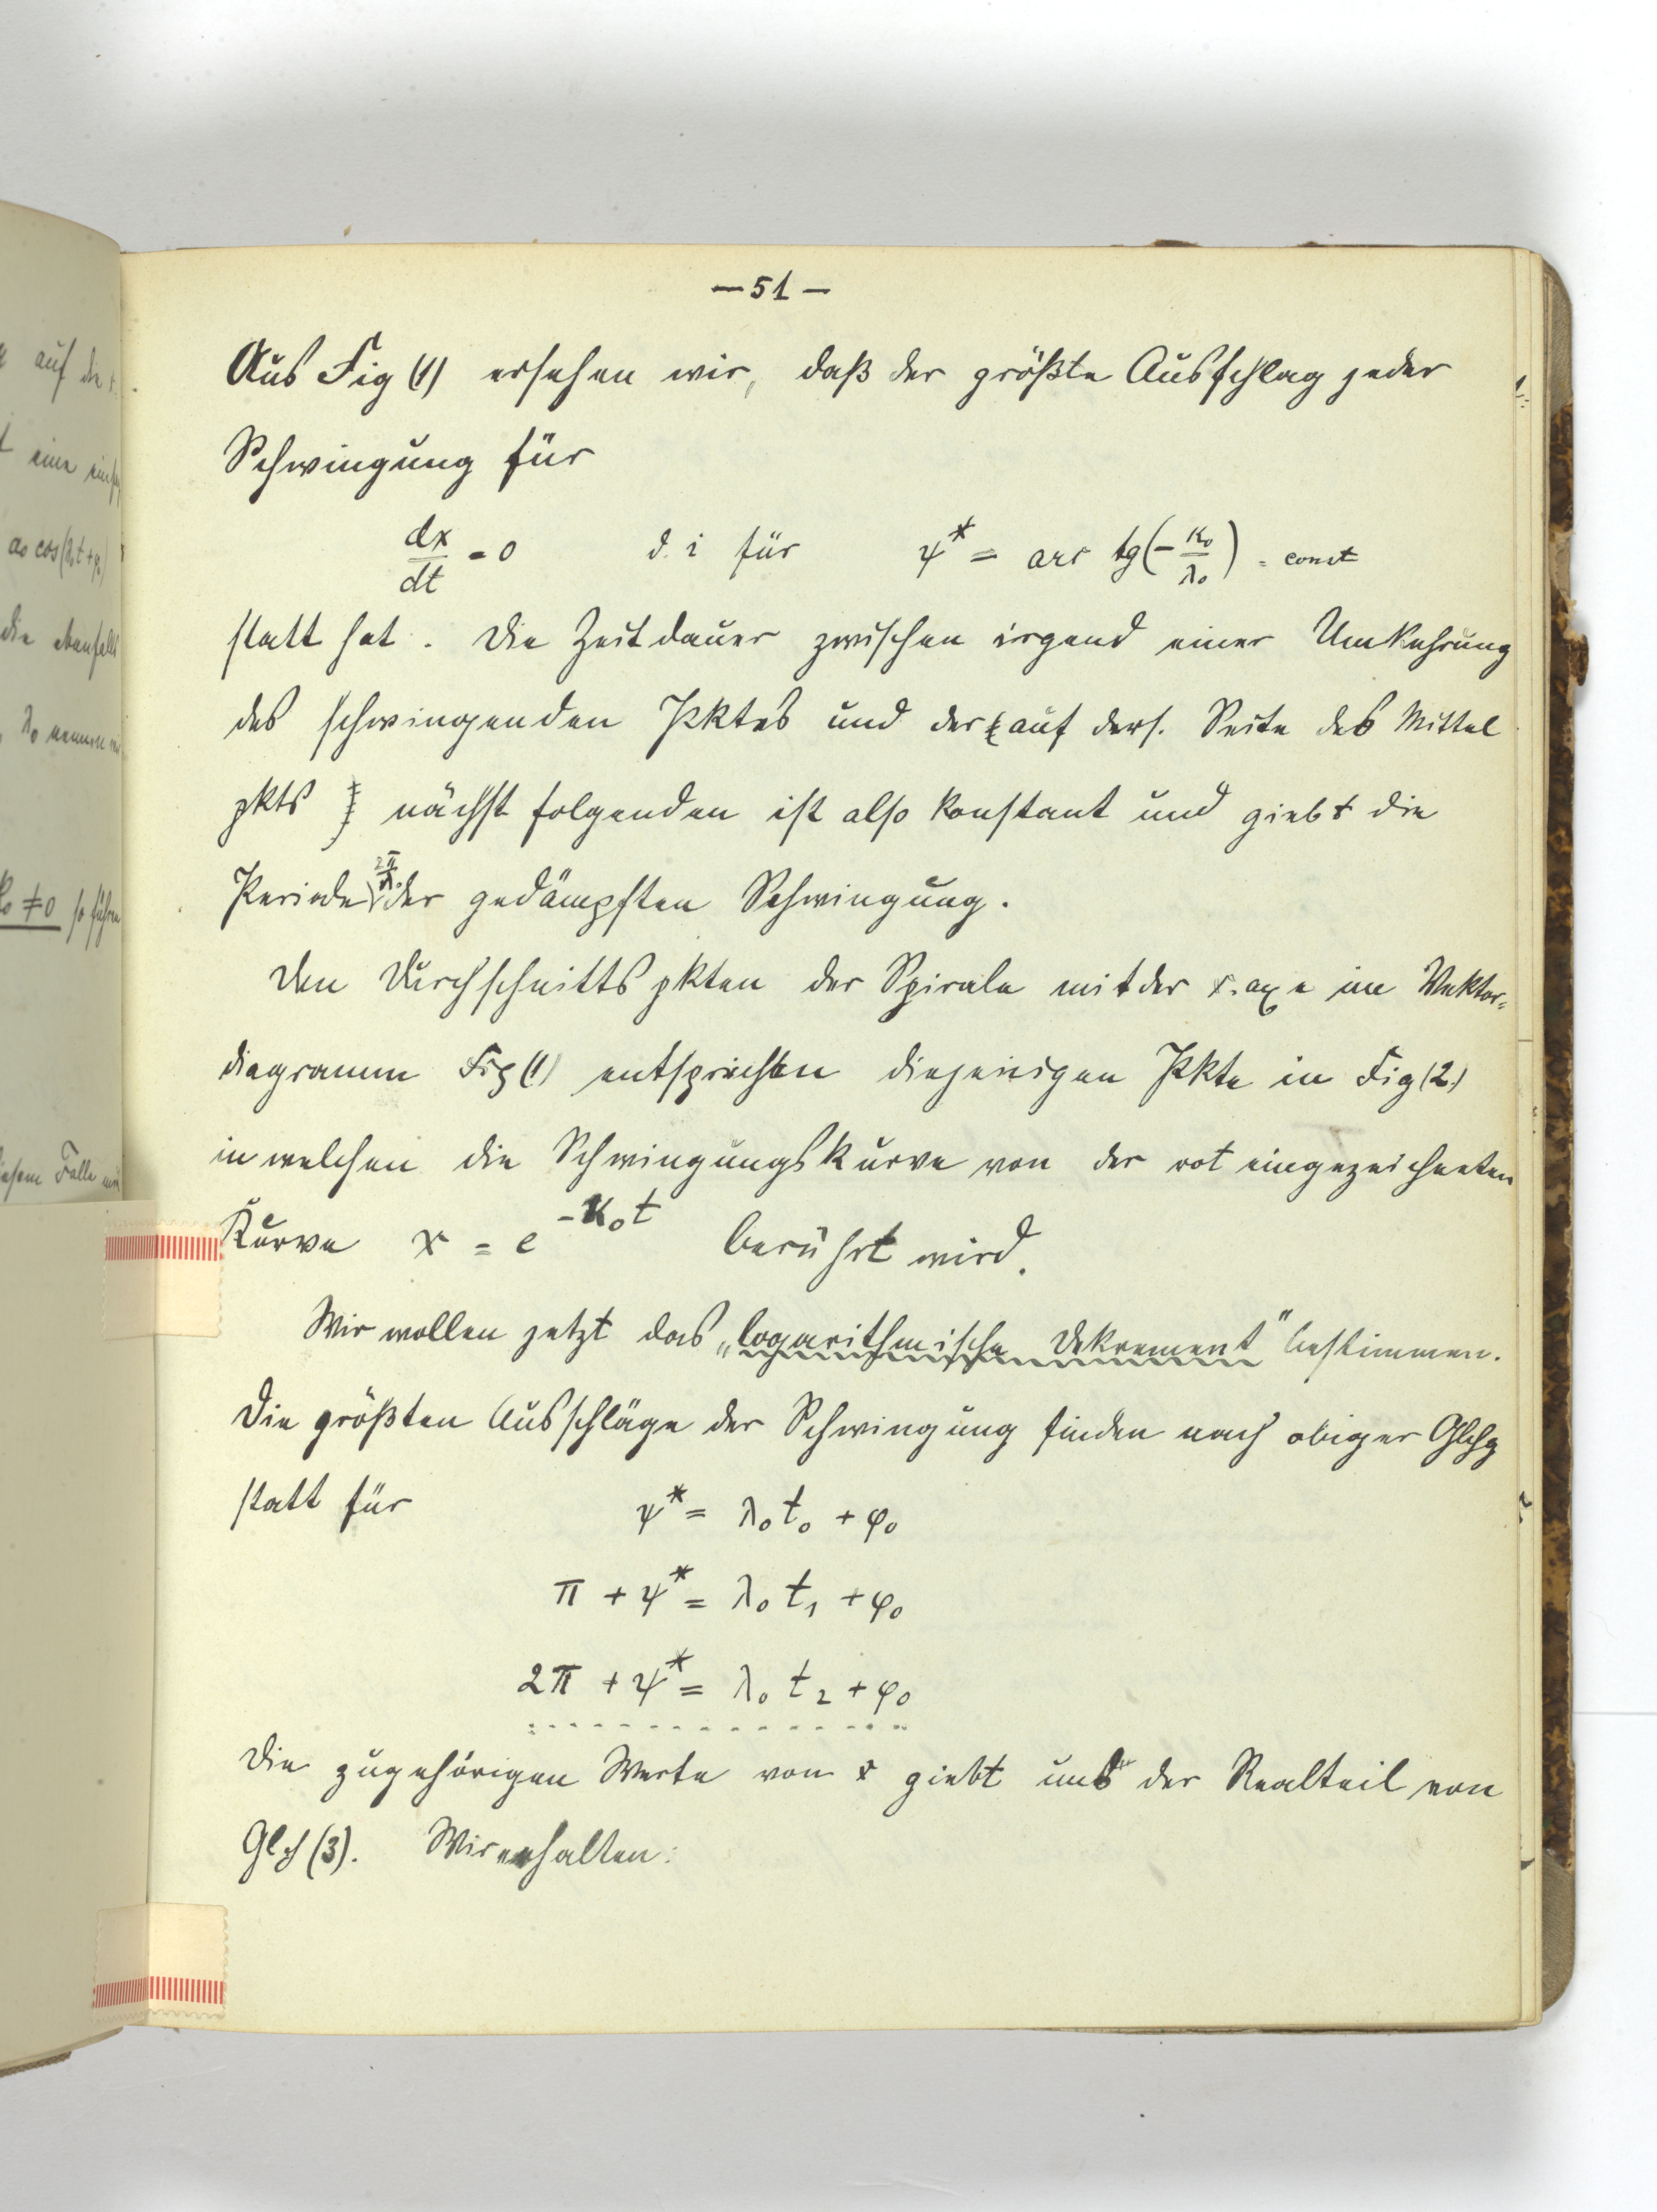 auf der x
— 51 —
eine einf
Aus Fig (1) ersehen wir, daß der größte Ausschlag jeder
Schwingung für
a₀ cos(λ₀t+φ₀)
dx/dt = 0 d. i für ψ* = arc tg(-κ₀/λ₀) = const
die ebenfalls
statt hat. Die Zeitdauer zwischen irgend einer Umkehrung
des schwingenden Pktes und der { auf ders. Seite des Mittel
λ₀ nennen wir
pkts } nächst folgenden ist also konstant und giebt die
Periode 2π/λ₀ der gedämpften Schwingung.
≠ 0 so führe
Den Durchschnittspkten der Spirale mit der x. axe im Vektor-
diagramm Fig (1) entsprechen diejenigen Pkte in Fig (2)
in welchen die Schwingungskurve von der rot eingezeichneten
diesem Falle wir
Kurve x = e^{-κ₀t} berührt wird.
Wir wollen jetzt das „logarithmische Dekrement" bestimmen.
Die größten Ausschläge der Schwingung finden nach obiger Glchg
statt für ψ* = λ₀t₀ + φ₀
π + ψ* = λ₀t₁ + φ₀
2π + ψ* = λ₀t₂ + φ₀
Die zugehörigen Werte von x giebt uns der Realteil von
Glch (3). Wir erhalten: